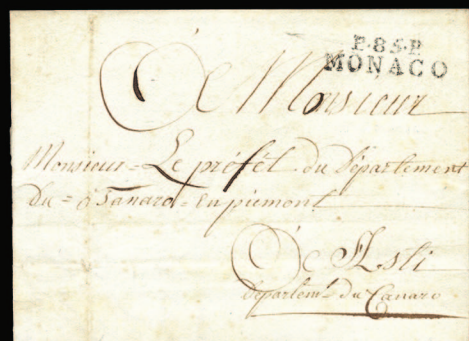 P.85.P.
MONACO
A Monsieur
Monsieur = Le préfet du Département
du = Tanaro = En piémont
A Asti
Départem.t du Tanaro